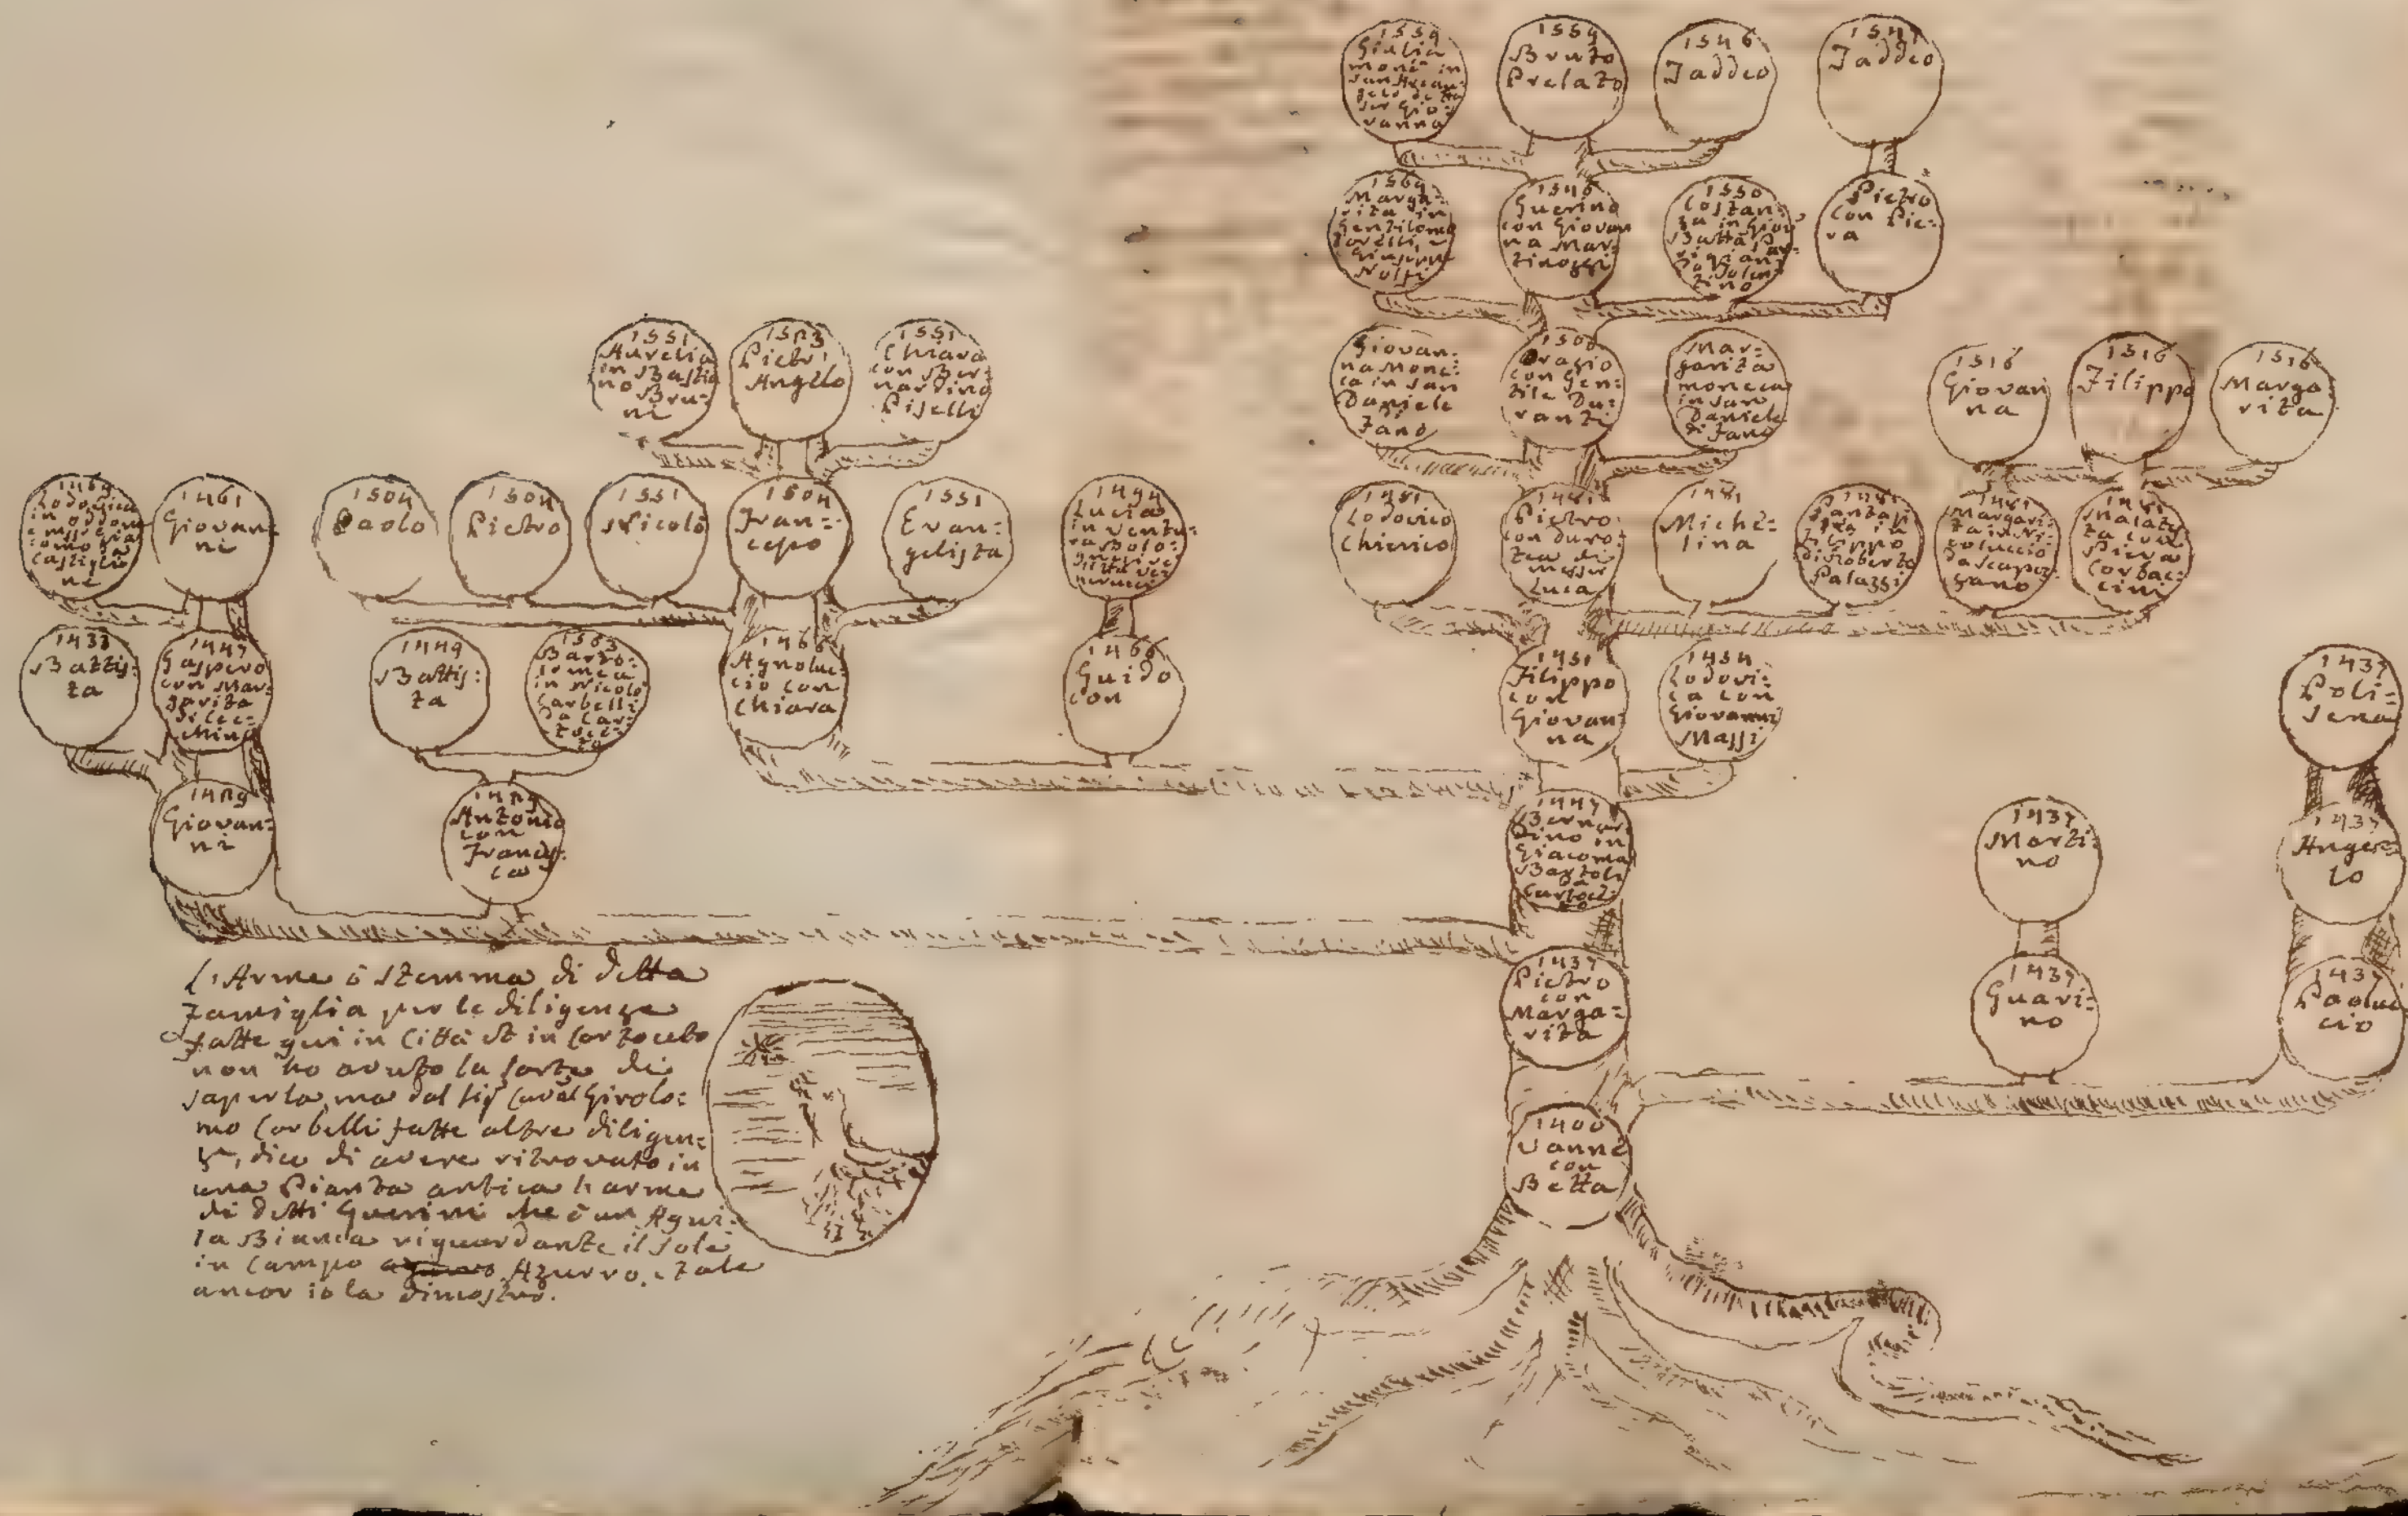 1559
Giulia
mon.ᵃ in
san Arcan:
gelo detta
sor Gio:
vanna
1559
Bruto
Prelato
1546
Taddeo
Taddeo
1569
Marga:
rita in
Gentilomo
1546
Guerino
con Giovan
na Mar:
tinozzi
1550
Costan:
za in Gio:
Batta
Pietro
con Pie:
ra
1551
Aurelia
in Bastia
no Bru:
ni
Pietr'
Angelo
1551
Chiara
con Ber:
nardino
Piselli
Giovan:
na Mona:
ca in san
Daniele
Fano
Orazio
con Gen:
tile Du:
ranti
Mar:
garita
moneca
in san
Daniele
di Fano
1516
Giovan
na
1516
Filippo
1516
Marga
rita
Lodovica
Castiglio
ne
1461
Giovan:
ni
1504
Paolo
1504
Pietro
1551
Nicolò
1504
Fran:
cesco
1551
Evan:
gelista
1494
Lucia
in Ventu:
ra Bolo:
1481
Lodovico
Chierico
1481
Pietro
con Duro:
tea di
messer
Luca
1481
Miche:
lina
1481
Fantasi
Filippo
di Roberto
Palazzi
1481
Margari:
ta in Ni:
coluccio
da Scapez:
zano
1481
Malates
ta con
Piera
Corbac:
cini
1433
Battis:
ta
1447
Gaspero
con Mar:
garita
di Cec:
chino
1449
Battis:
ta
1503
Barto:
lomea
in Nicolo
Carbelli
da Car:
toce:
to
1466
Agnoluc:
cio con
Chiara
1466
Guido
con
1451
Filippo
con
Giovan:
na
1454
Lodovi:
ca con
Giovanni
Massi
1437
Poli:
sena
1489
Giovan:
ni
1489
Antonio
con
Frances:
ca
1447
Bernar:
dino in
Giacoma
Bartoli
da
Cartoce:
to
1437
Marti:
no
1437
Angel:
lo
1437
Pietro
con
Marga:
rita
1437
Guari:
no
1437
Paoluc
cio
1400
Vanne
con
Betta
L'Arme ò stemma di detta
Famiglia per le diligenze
fatte qui in Città et in Cartoceto
non ho avuto la sorte di
saperla, ma dal Sig.ʳ Caval Girola:
mo Corbelli fatte altre diligen:
ze, dice di avere ritrovato in
una Pianta antica l'arme
di detti Guerini che è un Aqui:
la Bianca riguardante il sole
in Campo Azurro, e tale
ancor io la dimostro.